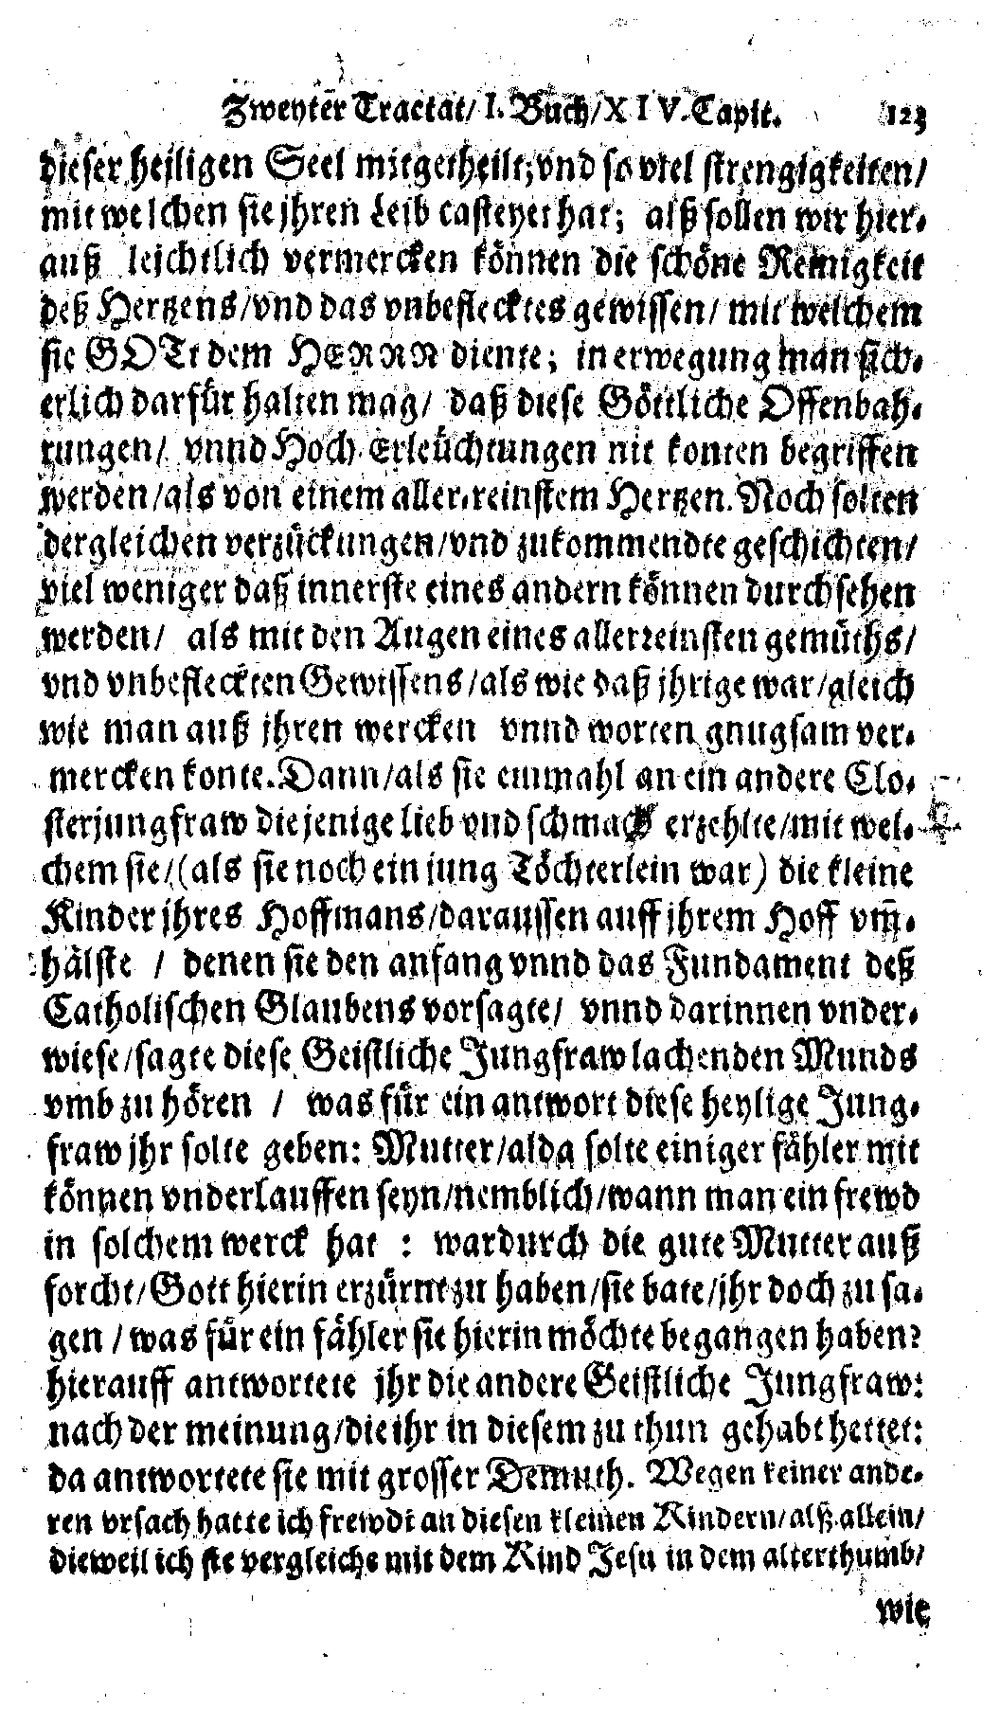 Zweyter Tractat/ I. Buch/ XIV. Capit. 123
dieser heiligen Seel mitgetheilt; vnd so viel strengigkeiten/
mit welchen sie jhren Leib casteyet hat; alß sollen wir hier-
auß leichtlich vermercken können die schöne Reinigkeit
deß Hertzens/vnd das vnbeflecktes gewissen/ mit welchem
sie GOTt dem HERRN diente; in erwegung man sich-
erlich darfür halten mag/ daß diese Göttliche Offenbah-
rungen/ vnnd Hoch Erleüchtungen nit konten begriffen
werden/als von einem aller-reinstem Hertzen. Noch solten
dergleichen verzückungen/vnd zukommendte geschichten/
viel weniger daß innerste eines andern können durchsehen
werden/ als mit den Augen eines allerreinsten gemüths/
vnd vnbefleckten Gewissens/als wie daß jhrige war/gleich
wie man auß jhren wercken vnnd worten gnugsam ver-
mercken konte. Dann/als sie einmahl an ein andere Clo-
sterjungfraw die jenige lieb vnd schmack erzehlte/mit wel-
chem sie/(als sie noch ein jung Töchterlein war) die kleine
Kinder jhres Hoffmans/daraussen auff jhrem Hoff vm̄-
hälste / denen sie den anfang vnnd das Fundament deß
Catholischen Glaubens vorsagte/ vnnd darinnen vnder-
wiese/sagte diese Geistliche Jungfraw lachenden Munds
vmb zu hören / was für ein antwort diese heylige Jung-
fraw jhr solte geben: Mutter/alda solte einiger fähler mit
können vnderlauffen seyn/nemblich/wann man ein frewd
in solchem werck hat : wardurch die gute Mutter auß
forcht/Gott hierin erzürnt zu haben/sie bate/jhr doch zu sa-
gen / was für ein fähler sie hierin möchte begangen haben?
hierauff antwortete jhr die andere Geistliche Jungfraw:
nach der meinung/die ihr in diesem zu thun gehabt hettet:
da antwortete sie mit grosser Demuth. Wegen keiner ande-
ren vrsach hatte ich frewdt an diesen kleinen Kindern/alß allein/
dieweil ich sie vergleiche mit dem Kind Jesu in dem alterthumb/
wie